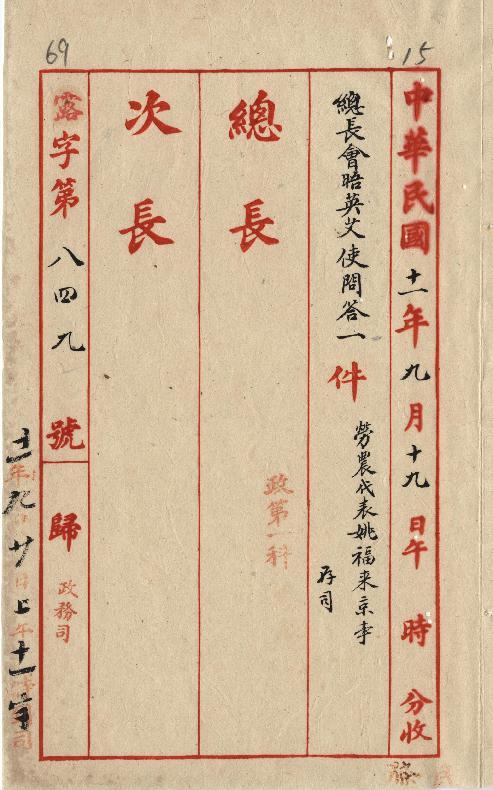 69
15
中華民國十一年九月十九日午　時　分收
總長會晤英艾使問答一件
勞農代表姚福来京事
存司
總長
政第一科
次長
露字第八四九號
歸政務司
十一年九月廿日上午十一時